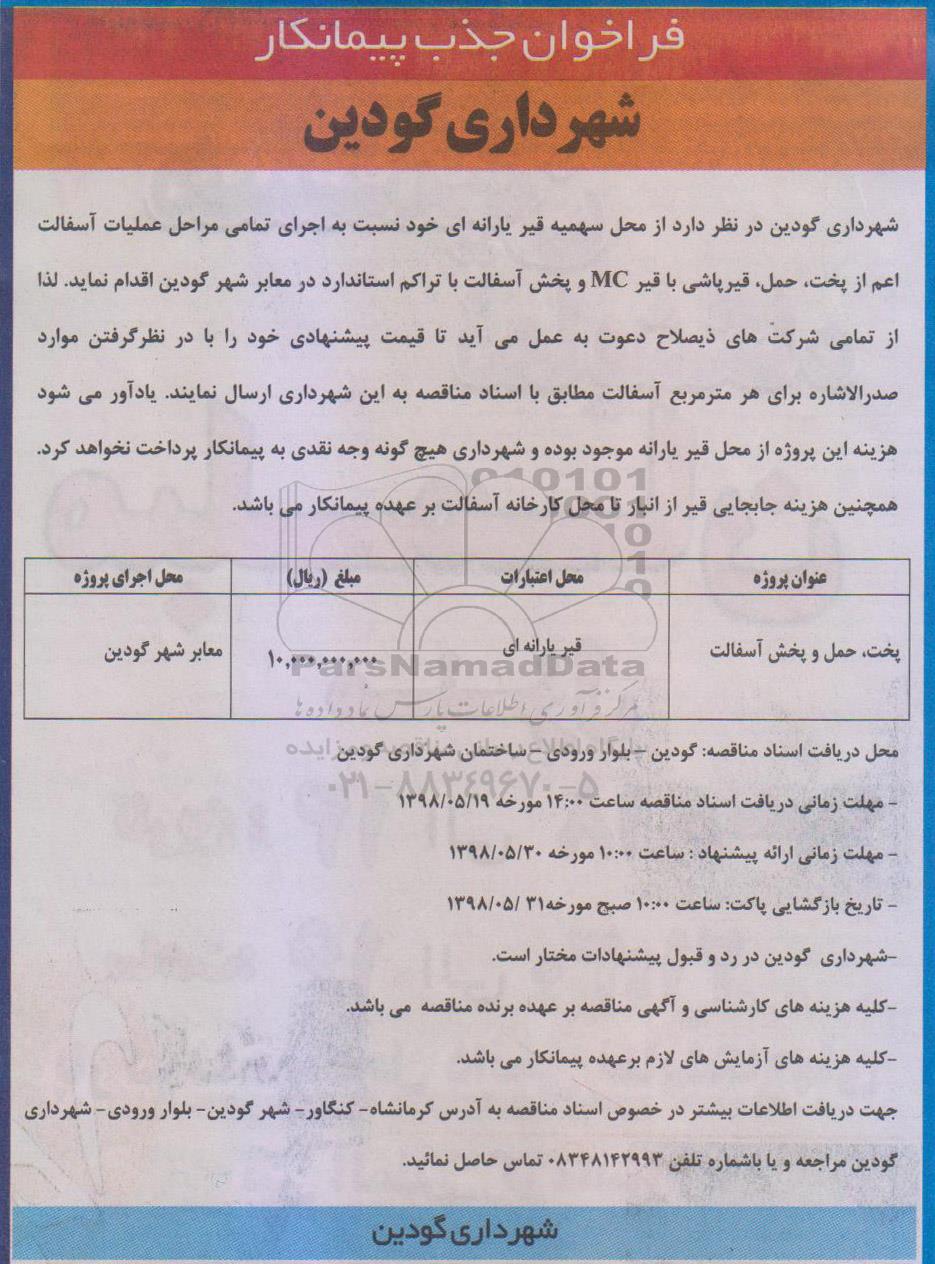 فراخوان جذب پیمانکار
شهرداری گودین
شهرداری گودین در نظر دارد از محل سهمیه قیر یارانه ای خود نسبت به اجرای تمامی مراحل عملیات آسفالت
اعم از پخت، حمل، قیرپاشی با قیر MC و پخش آسفالت با تراکم استاندارد در معابر شهر گودین اقدام نماید. لذا
از تمامی شرکت های ذیصلاح دعوت به عمل می آید تا قیمت پیشنهادی خود را با در نظرگرفتن موارد
صدرالاشاره برای هر مترمربع آسفالت مطابق با اسناد مناقصه به این شهرداری ارسال نمایند. یادآور می شود
هزینه این پروژه از محل قیر یارانه موجود بوده و شهرداری هیچ گونه وجه نقدی به پیمانکار پرداخت نخواهد کرد.
همچنین هزینه جابجایی قیر از انبار تا محل کارخانه آسفالت بر عهده پیمانکار می باشد.
عنوان پروژه محل اعتبارات مبلغ (ریال) محل اجرای پروژه
پخت، حمل و پخش آسفالت قیر یارانه ای ۱۰,۰۰۰,۰۰۰,۰۰۰ معابر شهر گودین
ParsNamadData
مرکز فرآوری اطلاعات پارس نماد داده ها
محل دریافت اسناد مناقصه: گودین – بلوار ورودی – ساختمان شهرداری گودین
۰۲۱-۸۸۳۴۹۶۷۰-۵
- مهلت زمانی دریافت اسناد مناقصه ساعت ۱۴:۰۰ مورخه ۱۳۹۸/۰۵/۱۹
- مهلت زمانی ارائه پیشنهاد : ساعت ۱۰:۰۰ مورخه ۱۳۹۸/۰۵/۳۰
- تاریخ بازگشایی پاکت: ساعت ۱۰:۰۰ صبح مورخه۳۱ /۱۳۹۸/۰۵
-شهرداری گودین در رد و قبول پیشنهادات مختار است.
-کلیه هزینه های کارشناسی و آگهی مناقصه بر عهده برنده مناقصه می باشد.
-کلیه هزینه های آزمایش های لازم برعهده پیمانکار می باشد.
جهت دریافت اطلاعات بیشتر در خصوص اسناد مناقصه به آدرس کرمانشاه- کنگاور- شهر گودین- بلوار ورودی- شهرداری
گودین مراجعه و یا باشماره تلفن ۰۸۳۴۸۱۴۲۹۹۳ تماس حاصل نمائید.
شهرداری گودین